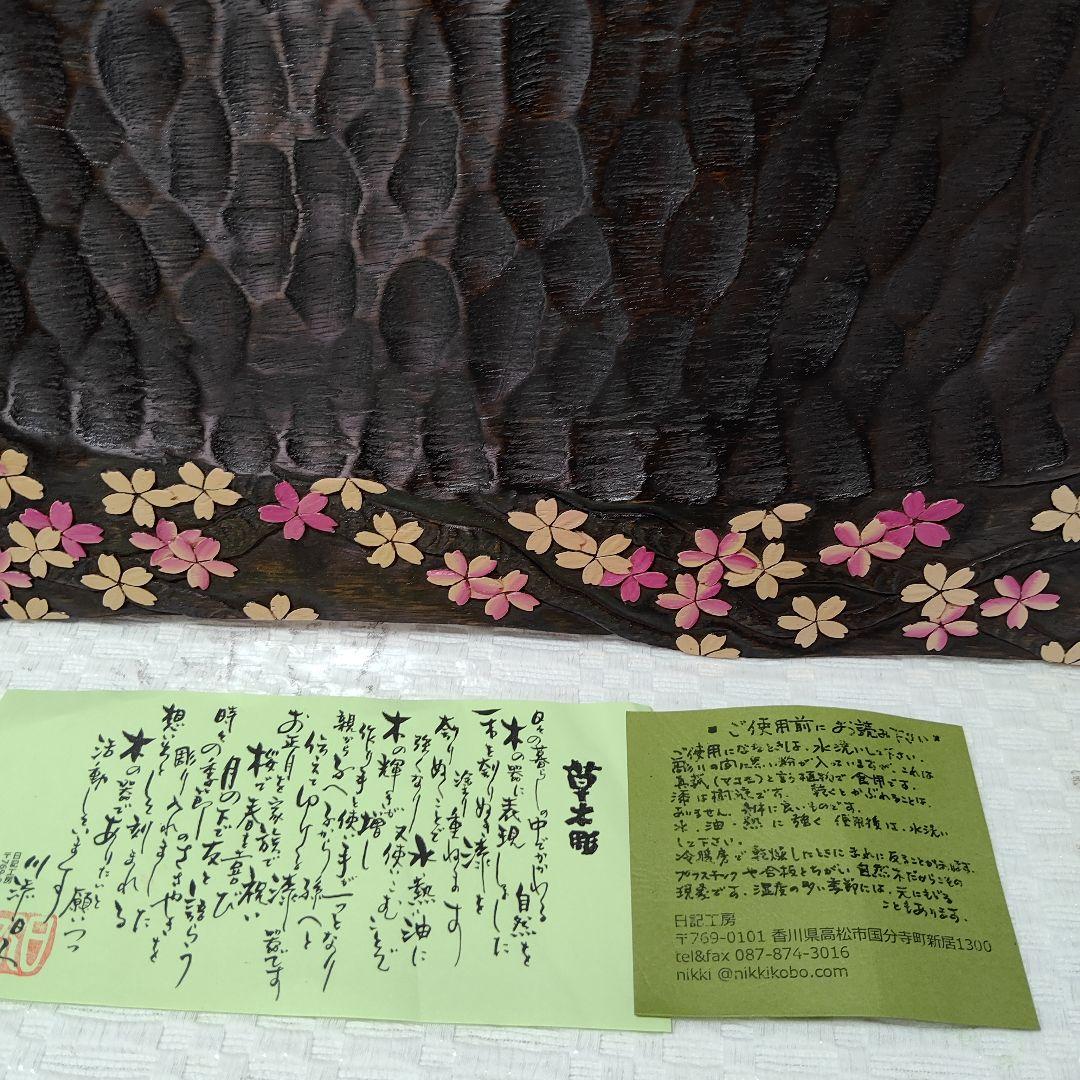 草木彫
日々の暮らしの中でかかわる自然を
木の器に表現しました
一木を刻りぬき漆を
塗り重ねます
刻りぬくことで水・熱・油に
強くなり
木の輝きが又使いこむことで
増し
作り手と使い手が一つとなり
親から子へ子から孫へと
伝えてゆく
お正月を家族で祝い
桜で春を喜び
月の下で友と語らう
時々の季節のささやきを
想いをこ
彫り入れました
木の器でありたいと願いつつ
活動しています
日記工房
■ご使用前にお読み下さい■
ご使用になるときは、水洗いして下さい。
彫りの間に黒い粉が入っていますが、これは
真菰(マコモ)と言う植物で食用です。
漆は樹液です。乾くとかぶれることは、
ありません。身体に良いものです。
水・油・熱に強く使用後は、水洗い
して下さい。
冷暖房で乾燥したときにまれに反ることがあります。
プラスチックや合板とちがい自然木だからこその
現象です。湿度の多い季節には、元にもどる
こともあります。
日記工房
〒769-0101 香川県高松市国分寺町新居1300
tel&fax 087-874-3016
nikki @nikkikobo.com